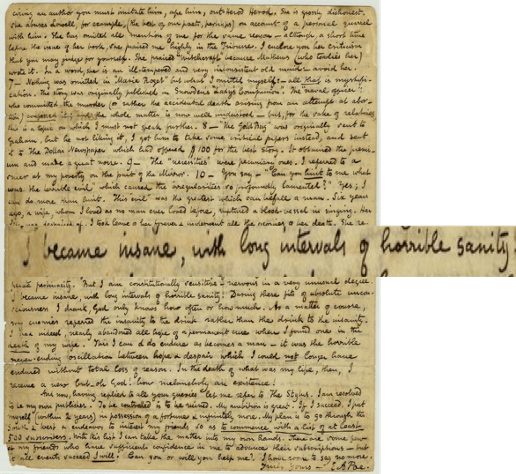 cizing an author you must imitate him, ape him, out-Herod Herod. She is grossly dishonest.
She abuses Lowell, for example, (the best of our poets, perhaps) on account of a personal quarrel
with him. She has omitted all mention of me for the same reason — although, a short time
before the issue of her book, she praised me highly in the Tribune. I enclose you her criticism
that you may judge for yourself. She praised "Witchcraft" because Mathews (who toadies her)
wrote it. In a word, she is an ill-tempered and very inconsistent old maid — avoid her.
7 — Nothing was omitted in "Marie Roget" but what I omitted myself: — all that is mystifi-
cation. The story was originally published in Snowden's "Lady's Companion". The "naval officer"
who committed the murder (or rather the accidental death arising from an attempt at abor-
tion) confessed it; and the whole matter is now well understood — but, for the sake of relatives,
this is a topic on which I must not speak further. 8 — "The Gold Bug" was originally sent to
Graham, but he not liking it, I got him to take some critical papers instead, and sent
it to The Dollar Newspaper which had offered $100 for the best story. It obtained the premi-
um and made a great noise. 9 — The "necessities" were pecuniary ones. I referred to a
sneer at my poverty on the part of the Mirror. 10 — You say — "Can you hint to me what
was the terrible evil" which caused the irregularities so profoundly lamented?" Yes; I
can do more than hint. This "evil" was the greatest which can befall a man. Six years
ago, a wife, whom I loved as no man ever loved before, ruptured a blood-vessel in singing. Her
life was despaired of. I took leave of her forever & underwent all the agonies of her death. She re-
I became insane, with long intervals of horrible sanity.
great pertinacity. But I am constitutionally sensitive — nervous in a very unusual degree.
I became insane, with long intervals of horrible sanity. During these fits of absolute uncon-
sciousness I drank, God only knows how often or how much. As a matter of course,
my enemies referred the insanity to the drink rather than the drink to the insanity.
I had indeed, nearly abandoned all hope of a permanent cure when I found one in the
death of my wife. This I can & do endure as becomes a man — it was the horrible
never-ending oscillation between hope & despair which I could not longer have
endured without total loss of reason. In the death of what was my life, then, I
receive a new but — oh God! how melancholy an existence!
And now, having replied to all your queries let me refer to The Stylus. I am resolved
to be my own publisher. To be controlled is to be ruined. My ambition is great. If I succeed, I put
myself (within 2 years) in possession of a fortune & infinitely more. My plan is to go through the
South & West & endeavor to interest my friends so as to commence with a list of at least
500 subscribers. With this list I can take the matter into my own hands. There are some few
of my friends who have sufficient confidence in me to advance their subscriptions — but
at all events succeed I will. Can you or will you help me? I have room to say no more.
Truly Yours — E A Poe.